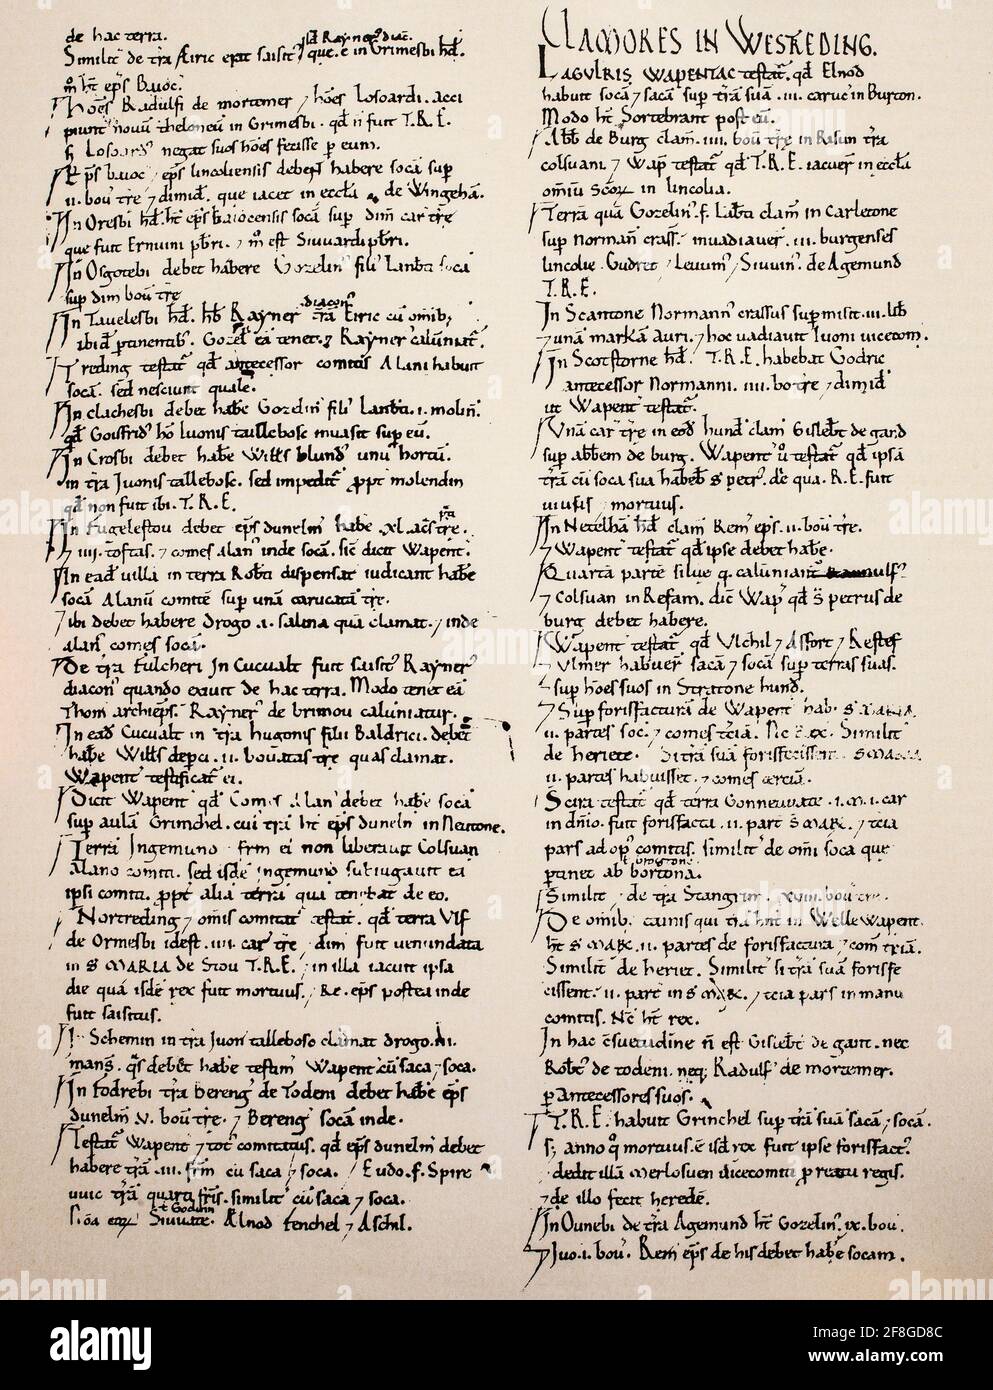 de hac terra.
Similit de t̃ra Ælric erat saisit que. ē in Grimesbi hđ.
sc̃a Rayner diac̃.
m̃ ht̃ ep̃s Baioc.
Hoẽs Radulfi de mortemer ⁊ hoẽs Losoardi. acci
piunt nouũ theloneũ in Grimesbi. qđ ñ fuit T.R.E.
Losoard negat suos hoẽs fecisse p eum.
Ep̃s baioc ⁊ ep̃s lincoliensis debent habere socã sup
ii. bou t̃re ⁊ dimiđ. que iacet in eccl̃a de Wingehã.
In Oresbi hđ. ht̃ ep̃s baiocensis socã sup dim̃ car t̃re
que fuit Ernuini pb̃ri. ⁊ m̃ est Siuuardi pb̃ri.
In Osgotebi debet habere Gozelin filĩ Lanb̃ti socã
sup dim bou t̃re
In Tauelesbi hđ. ht̃ Rayner diacon t̃rã Eiric cũ om̃ib;
ibiđ ptinentib. Gozel̃ eã tenet. ⁊ Rayner calũniat̃.
Treding testat̃ qđ antecessor comitis Alani habuit
socã. sed nesciunt quale.
In clachesbi debet hab̃e Gozelin filĩ Lanb̃ti .i. molin̄.
qđ Goisfriđ hõ Iuonis taillebosc inuasit sup eũ.
In Crosbi debet hab̃e Wills blunđ unũ hortũ.
in t̃ra Iuonis tallebosc. sed impedit̃ ppt̃ molendin
qđ non fuit ibi. T.R.E.
In Fugelestou debet ep̃s dunelm̃ hab̃e .xl. ac̃s t̃re.
⁊ iiii. toftas. ⁊ comes alan inde socã. sic̃ dicit Wapent̃.
In eađ uilla in terra Rotb̃ti dispensat̃ iudicant hab̃e
socã Alanũ comitẽ sup unã carucatã t̃re.
⁊ ibi debet habere Drogo .i. salina quã clamat. ⁊ inde
alan comes socã.
De t̃ra Fulcheri In Cucualt fuit saisit Rayner
diacon quando exiuit de hac terra. Modo tenet eã
Thom̃ archiep̃s. Rayner de brimou caluniatur.
In eađ Cucualt in t̃ra hugonis filii Baldrici. debet
hab̃e Wills de perci .ii. bouatas t̃re quas clamat.
Wapent testificat̃ ei.
Dicit Wapent qđ Comes Alan debet hab̃e socã
sup aulã Grimchel. cui t̃rã ht̃ ep̃s dunelm̃ in Neutone.
Terrã Ingemund ⁊ fr̃m ei non liberauit Colsuan
Alano comiti. sed isdẽ ingemund subiugauit eã
ipsi comiti. ppt̃ aliã terrã quã tenebat de eo.
Nortreding ⁊ om̃is comitat testat̃. qđ terra Vlf
de Ormesbi idest .iiii. car t̃re ⁊ dim̃ fuit uenundata
in S MARIA de Stou T.R.E. ⁊ in illa iacuit ipsa
die quã isdẽ rex fuit mortuus. ⁊ Re. ep̃s postea inde
fuit saisitus.
In Schemin in t̃ra Iuon tallebosc clamat Drogo .iii.
mans. q̃s debet hab̃e testim̃ Wapent cũ saca ⁊ soca.
In Fodrebi t̃ra bereng de Todeni debet hab̃e ep̃s
dunelm̃ .v. bou t̃re. ⁊ bereng socã inde.
Testat̃ Wapent ⁊ tot comitatus. qđ ep̃s dunelm debet
habere t̃rã .iii. fr̃m cũ saca ⁊ soca. Eudo .f. Spire
uuic t̃rã quarti fr̃is. similit̃ cũ saca ⁊ soca.
Siuuate. Ælnod fenchel ⁊ Aschil.
CLAMORES IN WESTREDING.
LAGULRIS WAPENTAC testat̃. qđ Elnod
habuit socã ⁊ sacã sup t̃rã suã .iii. caruc̃ in Burton.
Modo ht̃ Sortebrant post eũ.
Abb̃ de Burg clam̃ .iiii. bou t̃re in Risun t̃ra
colsuani. ⁊ Wap testat̃ qđ T.R.E. iacuer in eccl̃a
omiũ Sc̃oꝝ in lincolia.
Terrã quã Gozelin .f. Lãb̃ti clam̃ in Carletone
sup Normañ crass. inuadiauer .iii. burgenses
lincolie. Gudret ⁊ Leuuin̄ ⁊ Siuuin̄. de Agemund
T.R.E.
In Scantone Normann̄ crassus sup misit .iii. lib
⁊ unã markã auri. ⁊ hoc uadiauit Iuoni uicecom̄.
In Scotstorne hđ. T.R.E. habebat Godric
antecessor Normanni .iiii. bo t̃re ⁊ dimiđ
ut Wapent testat̃.
Vnã car t̃re in eođ hunđ clam̃ Gisleb̃t de gand
sup abb̃em de burg. Wapent ũ testat̃ qđ ipsã
t̃rã cũ soca sua habeb̃ S petr. de qua. R.E. fuit
uiuus ⁊ mortuus.
In Netelhã hđ clam̃ Rem ep̃s .ii. bou t̃re.
⁊ Wapent testat̃ qđ ipse debet hab̃e.
Quartã partẽ silue q̃ calũniant̃ ꝛannulf
⁊ Colsuan in Refam. dic̃t Wap qđ S petrus de
burg debet habere.
Wapent testat̃ qđ Vlchil ⁊ Asfort ⁊ Restef
⁊ Vlmer habuer sacã ⁊ socã sup terras suas.
⁊ sup hoẽs suos in Stratone hund.
⁊ Sup forisfacturã de Wapent hab. S MARIA
ii. partes soc̃. ⁊ comes tciã. Nc̃ ht̃ rex. Similit
de heriete. Si t̃rã suã forisfecissent. S MARIA
ii. partes habuisset. ⁊ comes terciã.
Scira testat̃ qđ terra Gonneuuate .i. m̃. i. car
in dñio. fuit forisfacta .ii. part̃ S MAR. ⁊ tcia
pars ad op comitis. similit̃ de om̃i soca que
ptinet ab bortona.
t brogtone
Similit̃ de t̃ra Stangrim .xviii. bou t̃re.
De omib. tainis qui t̃rã hñt in Welle wapent.
ht̃ S MARIA .ii. partes de forisfactura. ⁊ com̃ t̃ciã.
Similit̃ de heriet. Similit̃ si t̃rã suã forisfe
cissent. ii. part̃ in S MAR. ⁊ tcia pars in manu
comitis. Nc̃ ht̃ rex.
In hac c̃suetudine ñ est Gisleb̃t de gant. nec
Rotb̃t de todeni. neq; Radulf de mortemer.
p antecessores suos.
T.R.E. habuit Grinchel sup t̃rã suã sacã ⁊ socã.
S; anno quo mortuus ẽ isđ rex fuit ipse forisfact̃.
⁊ dedit illã merlosuen uicecomiti p reatu regis.
⁊ de illo fecit heredẽ.
In Ounebi de t̃ra Agemund ht̃ Gozelin̄ .ix. bou.
⁊ Iuo .i. bou. Rem̃ ep̃s de his debet hab̃e socam.